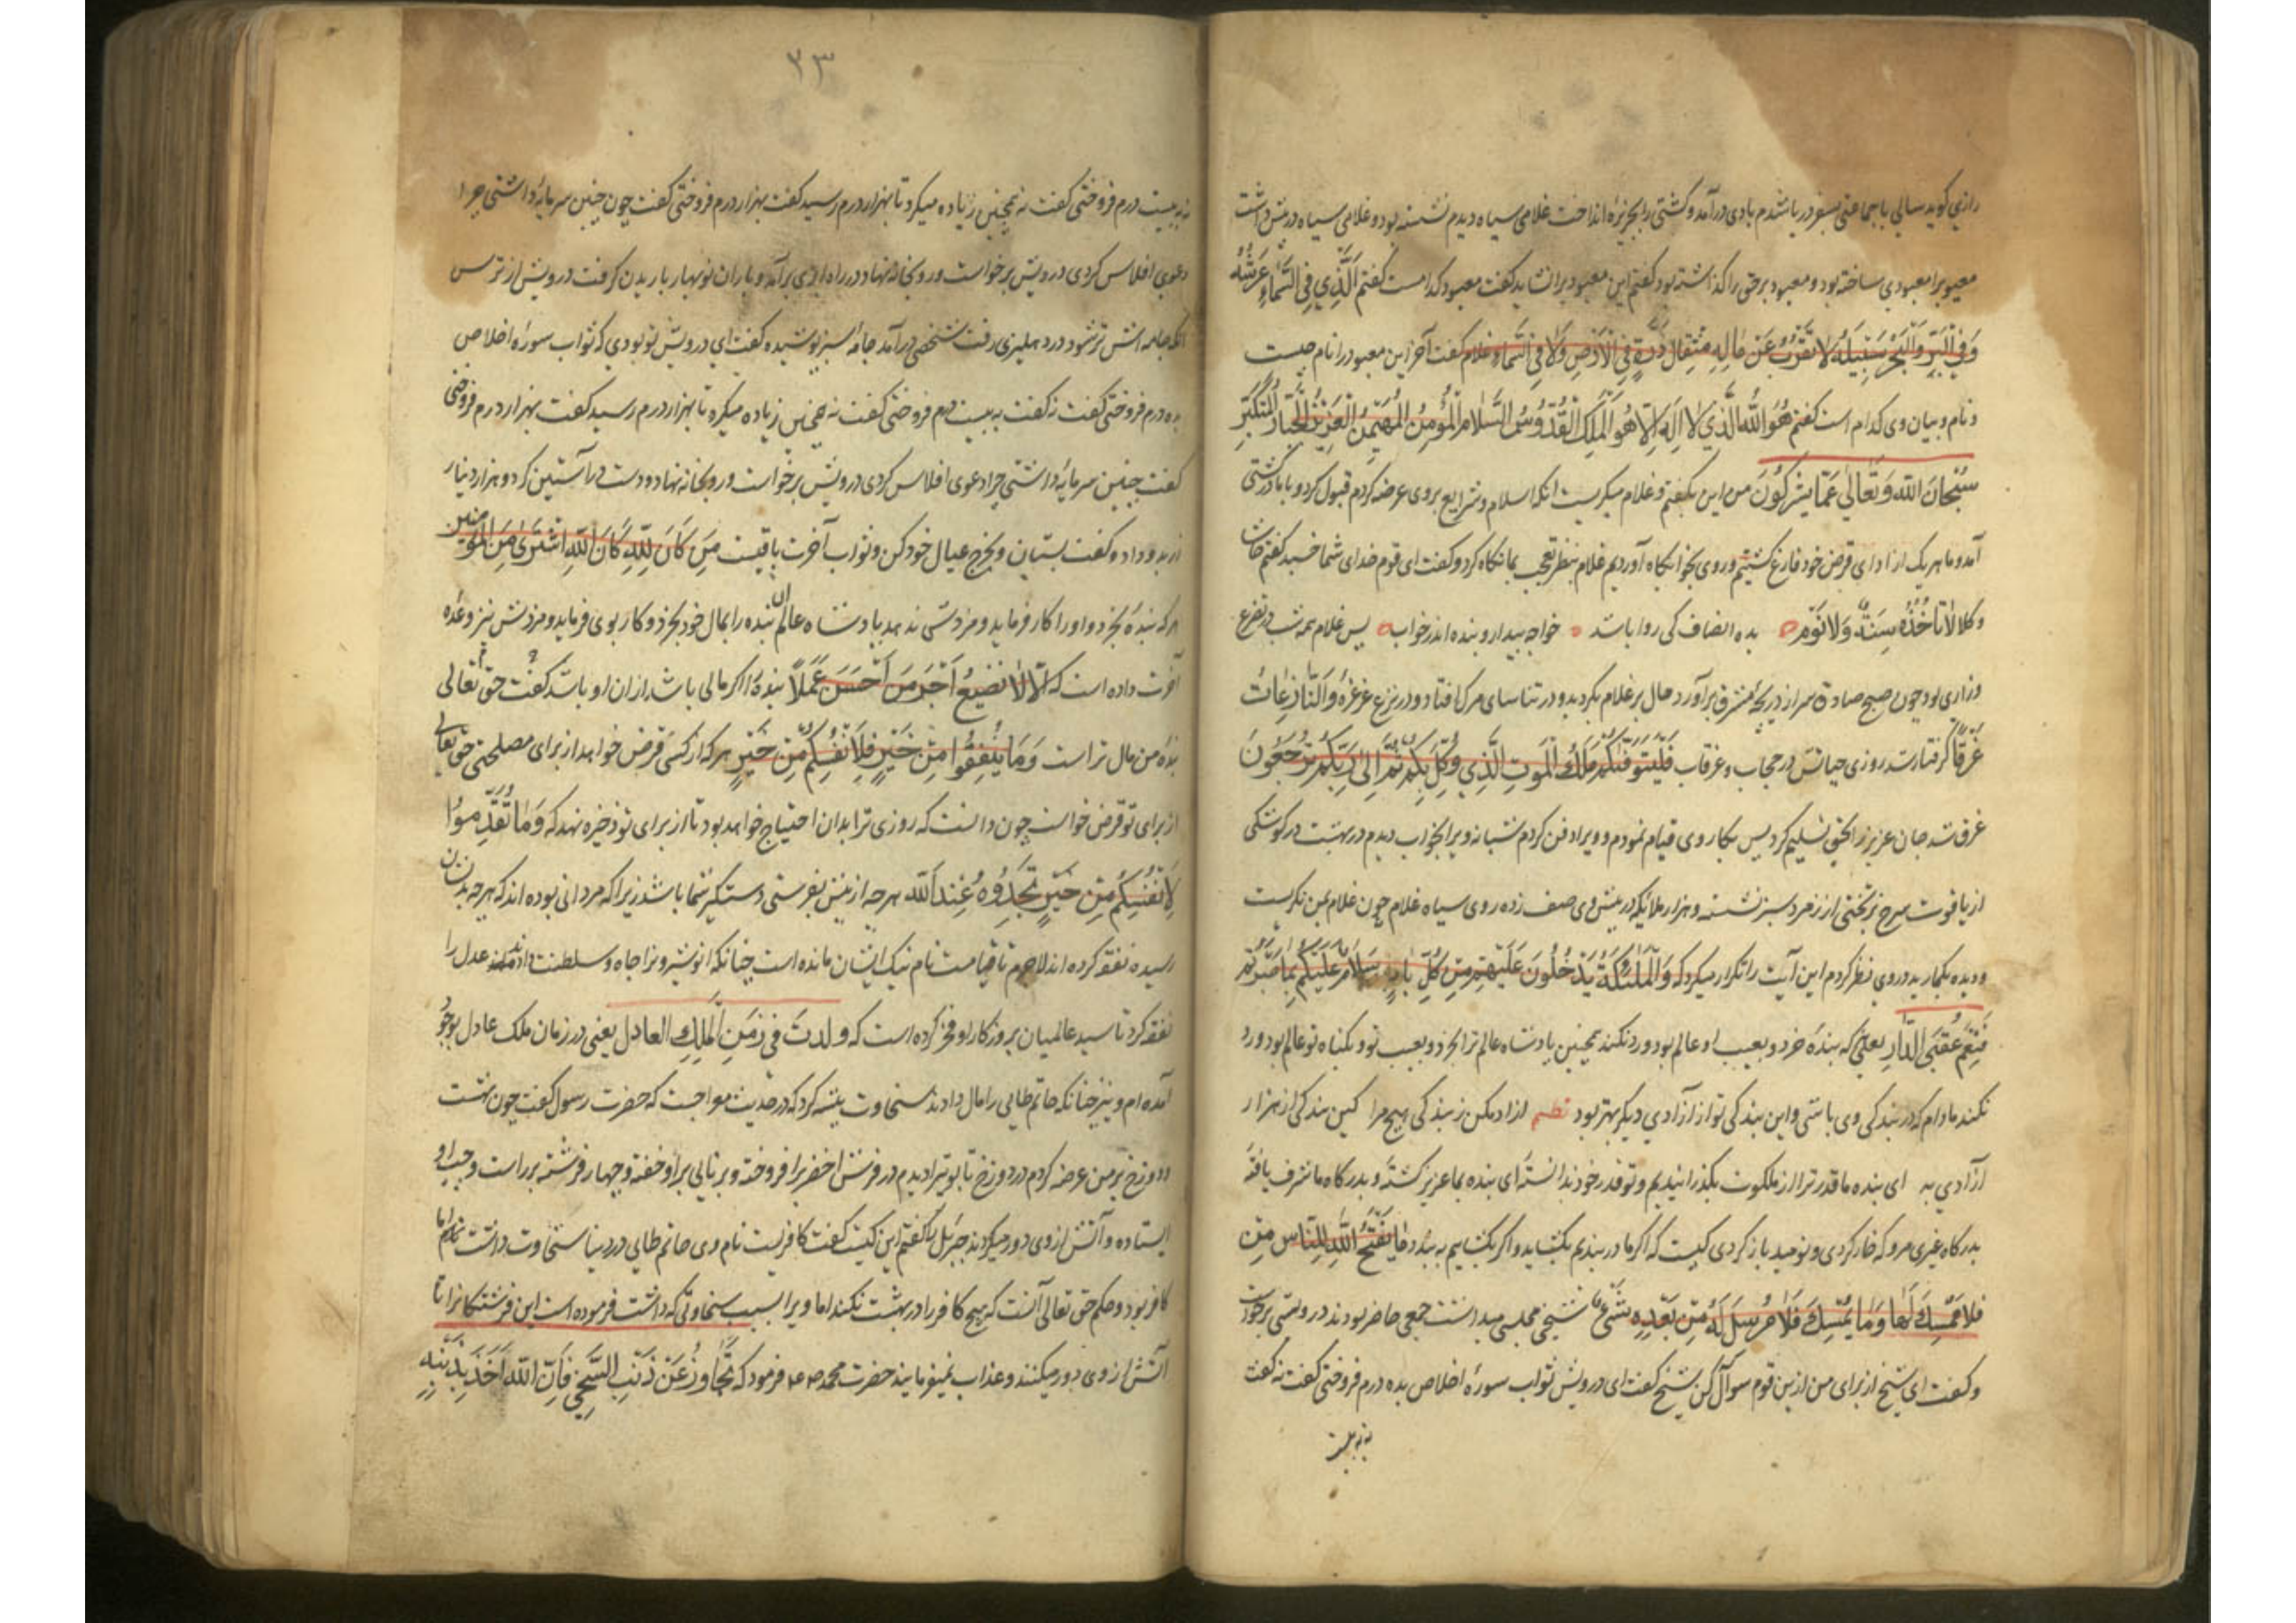 رازی کوید سالی با جماعتی بسفر دریا شدم بادی درآمد و کشتی را بجزیره انداخت غلامی سیاه دیدم نشسته بود و غلامی سیاه در پیش داشت
معبودی ساخته بود و معبود برحق را کذاشته بود کفتم این معبود برا نشاید کفت معبود کدامست کفتم اَلَّذِي فِي السَّمٰاءِ عَرْشُهُ
وَفِي الْبَرِّ وَالْبَحْرِ سَبِيلُهُ لا يَعْزُبُ عَنْ مِثْقٰالُ ذَرَّةٍ فِي الْاَرْضِ وَلٰا فِي السَّمٰاءِ غلام کفت آخر این معبود را نام چیست
و نام و بیان وی کدام است کفتم هُوَ اللّٰهُ الَّذِي لٰا اِلٰهَ اِلّٰا هُوَ الْمَلِكُ الْقُدُّوسُ السَّلٰامُ الْمُؤْمِنُ الْمُهَيْمِنُ الْعَزِيزُ الْجَبّٰارُ الْمُتَكَبِّرُ
سُبْحٰانَ اللّٰهِ وَتَعٰالٰي عَمّٰا يُشْرِكُونَ من این بکفتم و غلام میکریست انکه اسلام و شرایع بروی عرضه کردم قبول کرد و با ما در کشتی
آمد و ما هر یک از ادای فرض خود فارغ کشتیم و روی بخوابکاه آوردیم غلام بنظر تعجب بما نکاه کرد و کفت ای قوم خدای شما خسبد کفتم حاشا
و کلا لٰا تَأْخُذُهُ سِنَةٌ وَلٰا نَوْمٌ بده انصاف کی روا باشد خواجه بیدار و بنده اندر خواب پس غلام همه شب در تضرع
وزاری بود چون صبح صادق سر از دریچه مشرق برآورد حال بر غلام بکردید و در تناسای مرک افتاد و در نزع غرغره وَالنّٰازِعٰاتِ
غَرْقاً کرفتار شد روزی حیاتش در حجاب و غرقاب قُلْ يَتَوَفّٰيكُمْ مَلَكُ الْمَوْتِ الَّذِي وُكِّلَ بِكُمْ ثُمَّ اِلٰي رَبِّكُمْ تُرْجَعُونَ
غرق شد جان عزیز را بحق تسلیم کرد پس بکار وی قیام نمودم و ویرا دفن کردم شبانه ویرا بخواب دیدم در بهشت در کوشکی
از یاقوت سرخ بر تختی از زمرد سبز نشسته و هزار ملائکه در پیش وی صف زده روی سیاه غلام چون غلام بمن نکریست
و دیده یکبار بدر وی نظر کردم این آیت را تکرار میکرد که وَالْمَلٰئِكَةُ يَدْخُلُونَ عَلَيْهِمْ مِنْ كُلِّ بٰابٍ سَلٰامٌ عَلَيْكُمْ بِمٰا صَبَرْتُمْ
فَنِعْمَ عُقْبَي الدّٰارِ یعنی که بنده خرد و بعیب او عالم بود رد نکند همچنین پادشاه عالم ترا بخرد و بعیب تو و بکناه تو عالم بود رد
نکند مادام که در بندکی وی باشی و این بندکی تو از آزادی دیکر بهتر بود نظم ازاد مکن ز بندکی هیچ مرا کین بندکی از هزار
آزادی به ای بنده ما قدر ترا از ملکوت بکذرانیدیم و تو قدر خود ندانسته ای بنده بما عزیز کشته و بدرکاه ما شرف یافته
بدرکاه غیری مرو که خار کردی و نومید باز کردی کیست که اکر ما در بندیم بکشاید و اکر بکشاییم ببندد مٰا يَفْتَحِ اللّٰهُ لِلنّٰاسِ مِنْ
فَلٰا مُمْسِكَ لَهٰا وَمٰا يُمْسِكْ فَلٰا مُرْسِلَ لَهُ مِنْ بَعْدِهِ شیخی مجلسی میداشت جمعی حاضر بودند درویشی برخواست
و کفت ای شیخ از برای من ازین قوم سوال کن شیخ کفت ای درویش ثواب سورۀ اخلاص بده درم فروختی کفت نه کفت
به بیست
٢٣
به بیست درم فروختی کفت نه همچنین زیاده میکرد تا بهزار درم رسید کفت بهزار درم فروختی کفت چون چنین سرمایه داشتی چرا
دعوی افلاس کردی درویش برخواست و رو بخانه نهاد در راه ابری برآمد و باران نوبهار باریدن کرفت درویش از ترس
انکه جامه اش تر شود در دهلیزی رفت شخصی درآمد جامۀ سبز پوشیده کفت ای درویش تو بودی که ثواب سورۀ اخلاص
بده درم فروختی کفت نه کفت به بیست درم فروختی کفت نه همچنین زیاده میکرد تا بهزار درم رسید کفت بهزار درم فروختی
کفت چنین سرمایه داشتی چرا دعوی افلاس کردی درویش برخواست و رو بخانه نهاد و دست در آستین کرد و هزار دینار
زر بدو داد و کفت بستان و بخرج عیال خود کن و ثواب آخرت باقیست مَنْ كٰانَ لِلّٰهِ كٰانَ اللّٰهُ اشْتَرٰي مِنَ الْمُؤْمِنِينَ
هر که بندۀ بخرد و او را کار فرماید و مزدش ندهد پادشاه عالم ان بنده را بمال خود بخرد و کار بوی فرماید و مزدش نیز وعده
آخرت داده است که اِنّٰا لٰا نُضِيعُ اَجْرَ مَنْ اَحْسَنَ عَمَلاً بنده را اکر مالی باشد از ان او باشد کفت حق تعالی
بنده من مال تراست وَمٰا تُنْفِقُوا مِنْ خَيْرٍ فَلِاَنْفُسِكُمْ مِنْ خَيْرٍ هر که از کسی قرض خواهد از برای مصلحتی حق تعالی
از برای تو قرض خواست چون دانست که روزی ترا بدان احتیاج خواهد بود تا از برای تو ذخیره نهد که وَمٰا تُقَدِّمُوا
لِاَنْفُسِكُمْ مِنْ خَيْرٍ تَجِدُوهُ عِنْدَ اللّٰهِ هر چه از پیش بفرستی دستکیر شما باشد زیرا که مردانی بوده اند که هرچه بدیشان
رسیده نفقه کرده اند لاجرم تا قیامت نام نیک ایشان مانده است چنانکه انوشیروانرا جاه و سلطنت دادند عدل را
نفقه کرد تا سید عالمیان بروزکار او فخر کرده است که ولدتَ فِي زَمَنِ الْمَلِكِ العادل یعنی در زمان ملک عادل بوجود
آمده ام و نیز چنانکه حاتم طایی را مال دادند سخاوت پیشه کرد که در حدیث معراجست که حضرت رسول کفت چون بهشت
و دوزخ بر من عرضه کردم در دوزخ تابوتی را دیدم در فرش اخضر برافروخته و برنایی بر او خفته و چهار فرشته بر راست و چپ او
ایستاده و آتش از وی دور میکردند جبرئیل را کفتم این کیست کفت کافریست نام وی حاتم طایی در دنیا سخاوت داشت تمام اما
کافر بود و حکم حق تعالی آنست که هیچ کافر را در بهشت نکنند اما ویرا بسبب سخاوتی که داشت فرموده است این فرشتکانرا تا
آتش از وی دور میکنند و عذاب نمینمایند حضرت محمد فرمود که تَجٰاوَزُ عَنْ ذَنْبِ السَّخِيِّ فَاِنَّ اللّٰهَ اَخَذَ بِيَدِهِ